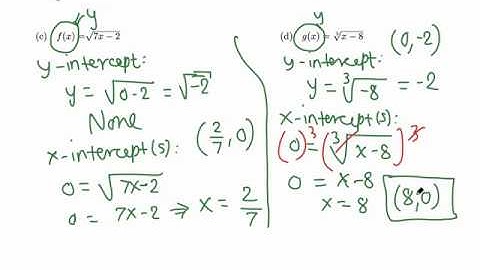 y
(c) f(x) = √7x − 2
y-intercept:
y = √0-2 = √-2
None
(2/7, 0)
x-intercept(s):
0 = √7x-2
0 = 7x-2 ⇒ x = 2/7
y
(d) g(x) = ∛x − 8
(0,-2)
y-intercept:
y = ∛-8 = -2
x-intercept(s):
(0)³ = (∛x-8)³
0 = x-8
x = 8
(8,0)